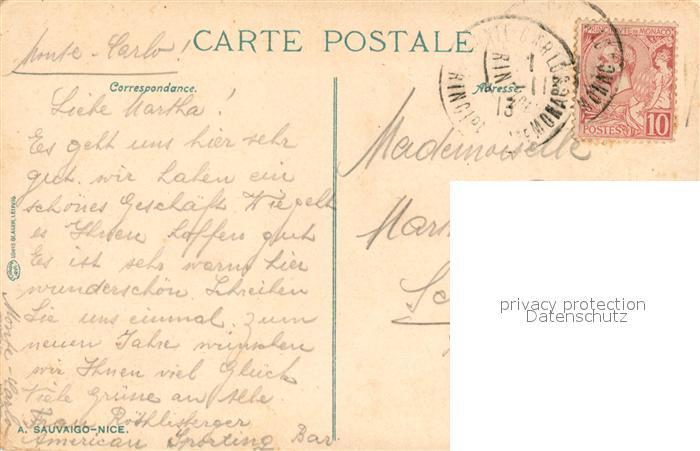 Monte-Carlo!
CARTE POSTALE
Correspondance.
Adresse
Liebe Martha!
Es geht uns hier sehr
gut. wir haben ein
schönes Geschäft Wie geht
es Ihnen hoffen gut
Es ist sehr warm hier
wunderschön. Schreiben
Sie uns einmal. Zum
neuen Jahre wünschen
wir Ihnen viel Glück
Viele Grüne an alle
Frau Röthlisberger
American Sporting Bar
Monte-Carlo
A. SAUVAIGO-NICE.
LOUIS GLASER, LEIPZIG
Mademoiselle
Mar
Sc
PRINCIPAUTÉ DE MONACO
POSTES 10
MONTE-CARLO
1
11
13
MONACO
privacy protection
Datenschutz